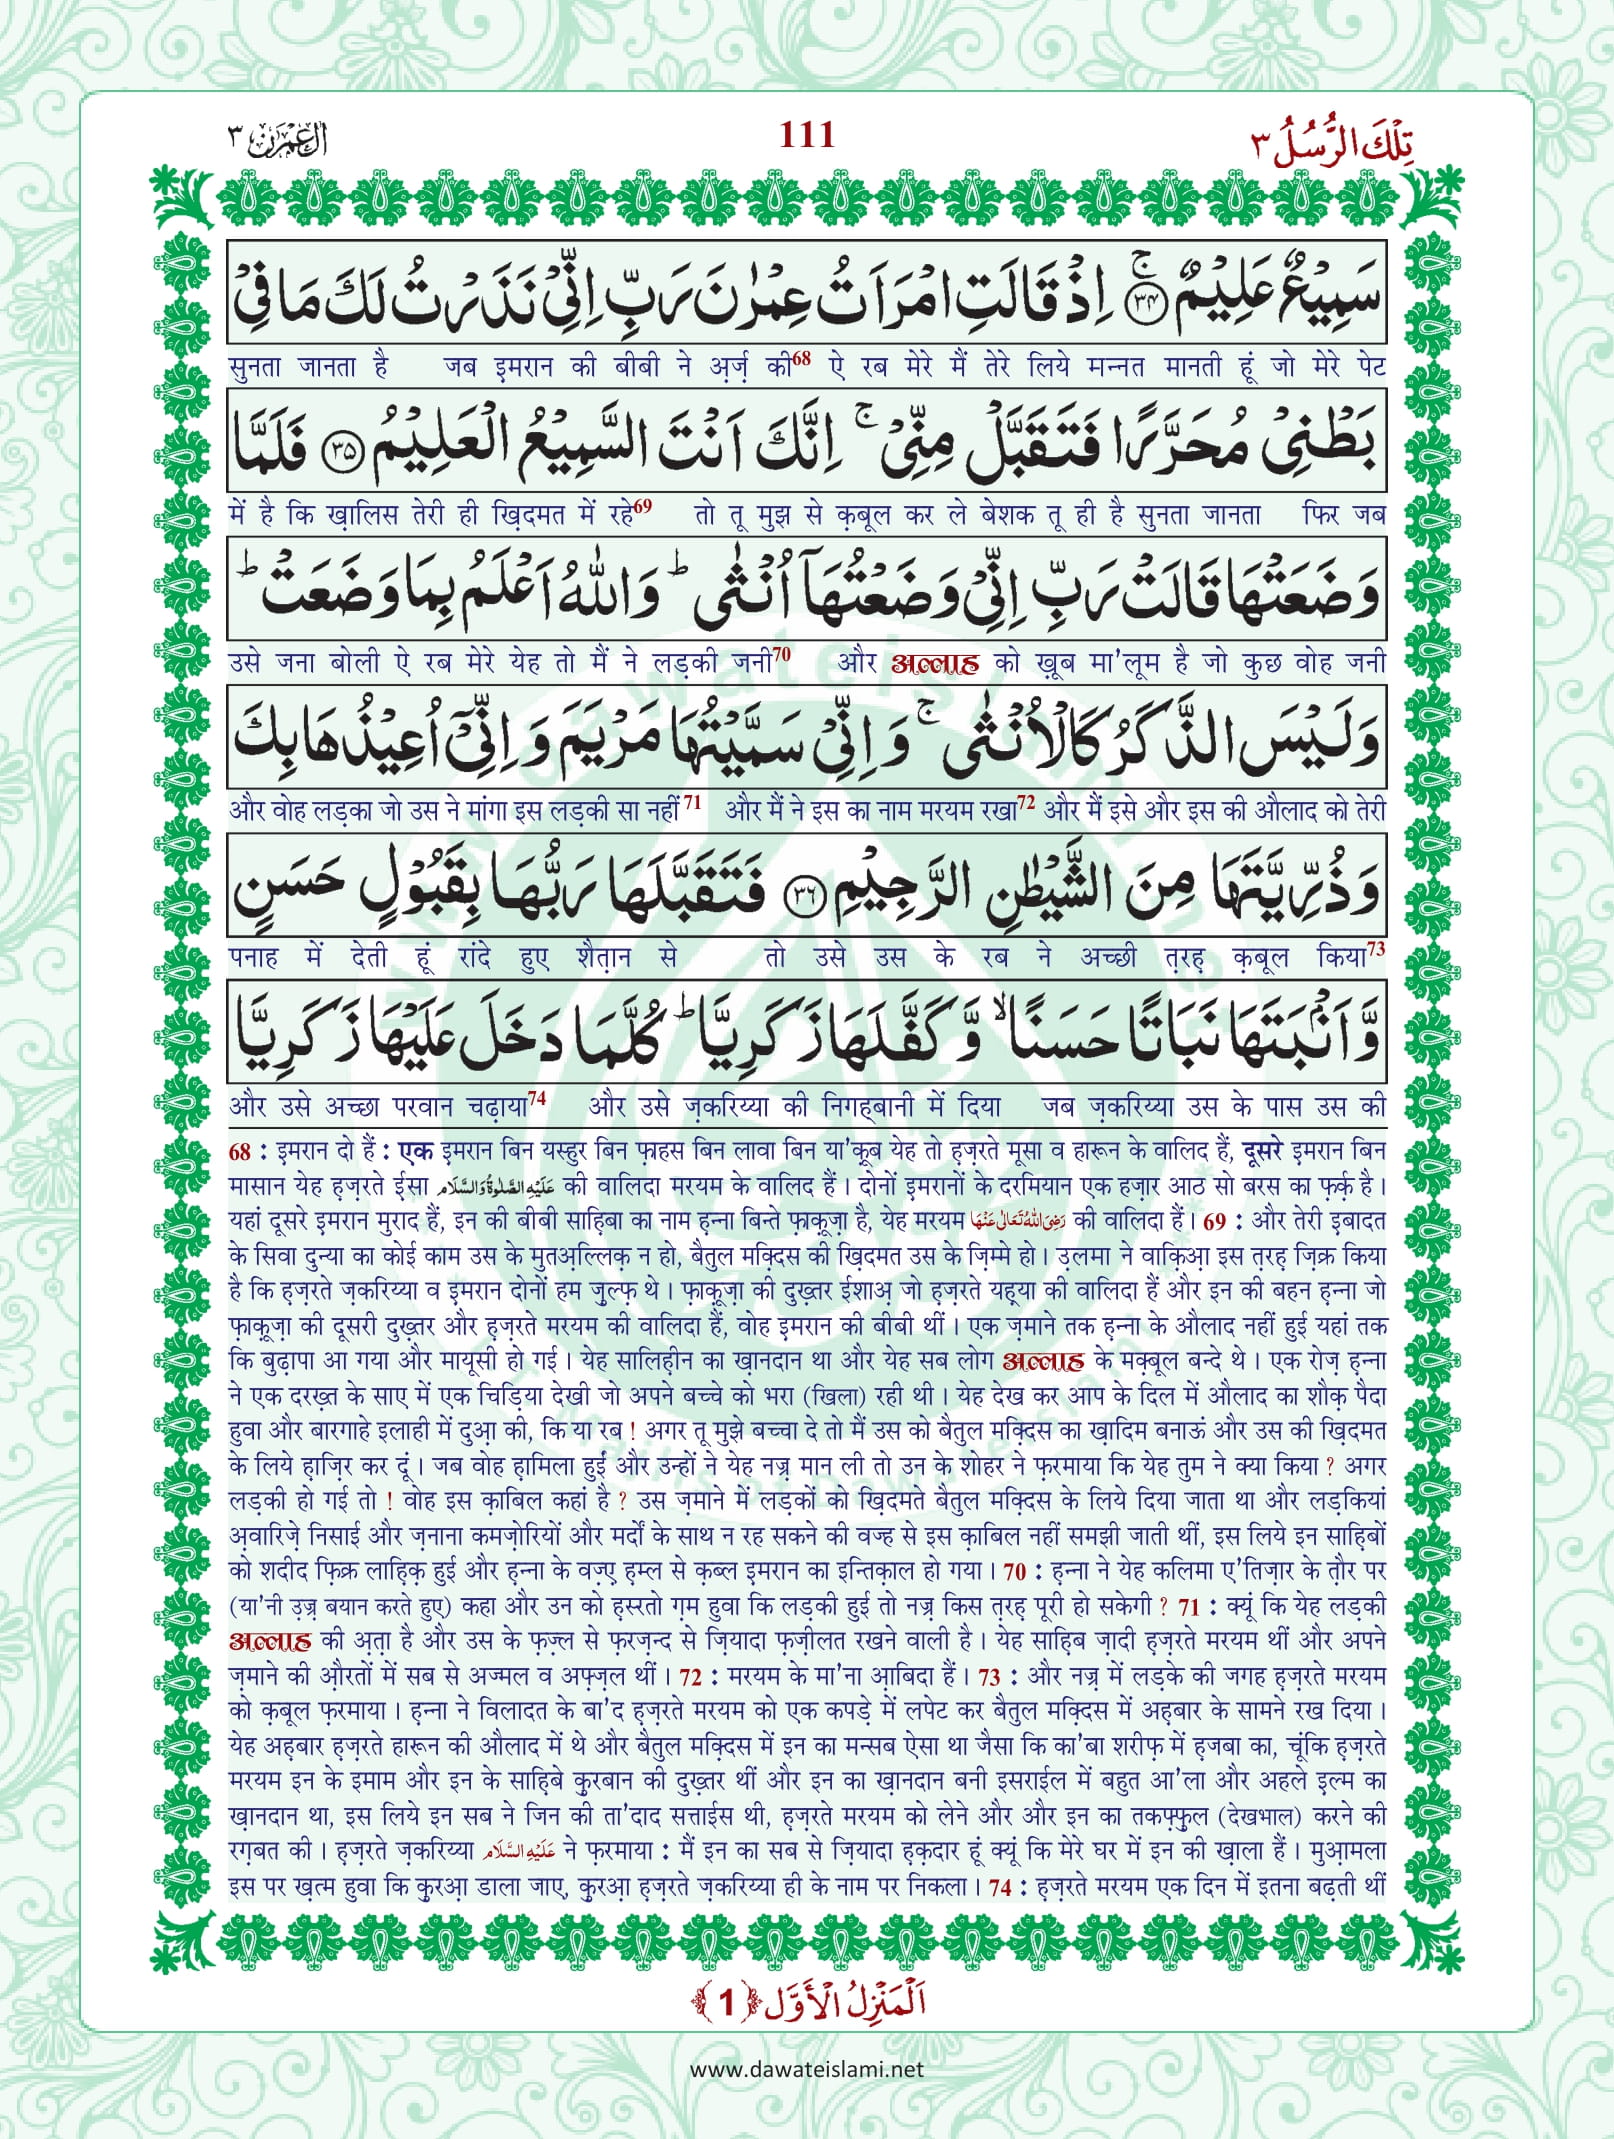 اٰل عمرٰن ۳
111
تِلْكَ الرُّسُلُ ۳
سَمِيْعٌ عَلِيْمٌ ۚ﴿۳۴﴾ اِذْ قَالَتِ امْرَاَتُ عِمْرٰنَ رَبِّ اِنِّیْ نَذَرْتُ لَكَ مَا فِیْ
सुनता जानता है जब इमरान की बीबी ने अ़र्ज़ की68 ऐ रब मेरे मैं तेरे लिये मन्नत मानती हूं जो मेरे पेट
بَطْنِیْ مُحَرَّرًا فَتَقَبَّلْ مِنِّیْ ۚ اِنَّكَ اَنْتَ السَّمِيْعُ الْعَلِيْمُ ﴿۳۵﴾ فَلَمَّا
में है कि ख़ालिस तेरी ही ख़िदमत में रहे69 तो तू मुझ से क़बूल कर ले बेशक तू ही है सुनता जानता फिर जब
وَضَعَتْهَا قَالَتْ رَبِّ اِنِّیْ وَضَعْتُهَاۤ اُنْثٰی ؕ وَاللّٰهُ اَعْلَمُ بِمَا وَضَعَتْ ؕ
उसे जना बोली ऐ रब मेरे येह तो मैं ने लड़की जनी70 और अल्लाह को ख़ूब मा'लूम है जो कुछ वोह जनी
وَلَيْسَ الذَّكَرُ كَالْاُنْثٰی ۚ وَ اِنِّیْ سَمَّيْتُهَا مَرْيَمَ وَ اِنِّیْۤ اُعِيْذُهَا بِكَ
और वोह लड़का जो उस ने मांगा इस लड़की सा नहीं71 और मैं ने इस का नाम मरयम रखा72 और मैं इसे और इस की औलाद को तेरी
وَذُرِّيَّتَهَا مِنَ الشَّيْطٰنِ الرَّجِيْمِ ﴿۳۶﴾ فَتَقَبَّلَهَا رَبُّهَا بِقَبُوْلٍ حَسَنٍ
पनाह में देती हूं रांदे हुए शैत़ान से तो उसे उस के रब ने अच्छी त़रह़ क़बूल किया73
وَّ اَنْۢبَتَهَا نَبَاتًا حَسَنًا ۙ وَّ كَفَّلَهَا زَكَرِيَّا ؕ كُلَّمَا دَخَلَ عَلَيْهَا زَكَرِيَّا
और उसे अच्छा परवान चढ़ाया74 और उसे ज़करिय्या की निगह्बानी में दिया जब ज़करिय्या उस के पास उस की
68 : इमरान दो हैं : एक इमरान बिन यस्हुर बिन फ़ाहस बिन लावा बिन या'क़ूब येह तो ह़ज़रते मूसा व हारून के वालिद हैं, दूसरे इमरान बिन
मासान येह ह़ज़रते ईसा عَلَيْهِ الصَّلٰوةُ وَالسَّلَام की वालिदा मरयम के वालिद हैं । दोनों इमरानों के दरमियान एक हज़ार आठ सो बरस का फ़र्क़ है ।
यहां दूसरे इमरान मुराद हैं, इन की बीबी साहिबा का नाम ह़न्ना बिन्ते फ़ाक़ूज़ा है, येह मरयम رَضِیَ اللهُ تَعَالٰی عَنْهَا की वालिदा हैं । 69 : और तेरी इबादत
के सिवा दुन्या का कोई काम उस के मुतअ़ल्लिक़ न हो, बैतुल मक़्दिस की ख़िदमत उस के ज़िम्मे हो । उ़लमा ने वाक़िआ़ इस त़रह़ ज़िक्र किया
है कि ह़ज़रते ज़करिय्या व इमरान दोनों हम ज़ुल्फ़ थे । फ़ाक़ूज़ा की दुख़्तर ईशाअ़ जो ह़ज़रते यह़्या की वालिदा हैं और इन की बहन ह़न्ना जो
फ़ाक़ूज़ा की दूसरी दुख़्तर और ह़ज़रते मरयम की वालिदा हैं, वोह इमरान की बीबी थीं । एक ज़माने तक ह़न्ना के औलाद नहीं हुई यहां तक
कि बुढ़ापा आ गया और मायूसी हो गई । येह सालिह़ीन का ख़ानदान था और येह सब लोग अल्लाह के मक़्बूल बन्दे थे । एक रोज़ ह़न्ना
ने एक दरख़्त के साए में एक चिड़िया देखी जो अपने बच्चे को भरा (खिला) रही थी । येह देख कर आप के दिल में औलाद का शौक़ पैदा
हुवा और बारगाहे इलाही में दुआ़ की, कि या रब ! अगर तू मुझे बच्चा दे तो मैं उस को बैतुल मक़्दिस का ख़ादिम बनाऊं और उस की ख़िदमत
के लिये ह़ाज़िर कर दूं । जब वोह ह़ामिला हुईं और उन्हों ने येह नज़्र मान ली तो उन के शोहर ने फ़रमाया कि येह तुम ने क्या किया ? अगर
लड़की हो गई तो ! वोह इस क़ाबिल कहां है ? उस ज़माने में लड़कों को ख़िदमते बैतुल मक़्दिस के लिये दिया जाता था और लड़कियां
अ़वारिज़े निसाई और ज़नाना कमज़ोरियों और मर्दों के साथ न रह सकने की वज्ह से इस क़ाबिल नहीं समझी जाती थीं, इस लिये इन साहिबों
को शदीद फ़िक्र लाह़िक़ हुई और ह़न्ना के वज़्ए़ ह़म्ल से क़ब्ल इमरान का इन्तिक़ाल हो गया । 70 : ह़न्ना ने येह कलिमा ए'तिज़ार के त़ौर पर
(या'नी उ़ज़्र बयान करते हुए) कहा और उन को ह़स्रतो ग़म हुवा कि लड़की हुई तो नज़्र किस त़रह़ पूरी हो सकेगी ? 71 : क्यूं कि येह लड़की
अल्लाह की अ़त़ा है और उस के फ़ज़्ल से फ़रज़न्द से ज़ियादा फ़ज़ीलत रखने वाली है । येह साहिब ज़ादी ह़ज़रते मरयम थीं और अपने
ज़माने की औ़रतों में सब से अज्मल व अफ़्ज़ल थीं । 72 : मरयम के मा'ना आ़बिदा हैं । 73 : और नज़्र में लड़के की जगह ह़ज़रते मरयम
को क़बूल फ़रमाया । ह़न्ना ने विलादत के बा'द ह़ज़रते मरयम को एक कपड़े में लपेट कर बैतुल मक़्दिस में अह़बार के सामने रख दिया ।
येह अह़बार ह़ज़रते हारून की औलाद में थे और बैतुल मक़्दिस में इन का मन्सब ऐसा था जैसा कि का'बा शरीफ़ में ह़जबा का, चूंकि ह़ज़रते
मरयम इन के इमाम और इन के साहिबे क़ुरबान की दुख़्तर थीं और इन का ख़ानदान बनी इसराईल में बहुत आ'ला और अहले इ़ल्म का
ख़ानदान था, इस लिये इन सब ने जिन की ता'दाद सत्ताईस थी, ह़ज़रते मरयम को लेने और और इन का तकफ़्फ़ुल (देखभाल) करने की
रग़बत की । ह़ज़रते ज़करिय्या عَلَيْهِ السَّلَام ने फ़रमाया : मैं इन का सब से ज़ियादा ह़क़दार हूं क्यूं कि मेरे घर में इन की ख़ाला हैं । मुआ़मला
इस पर ख़त्म हुवा कि क़ुरआ़ डाला जाए, क़ुरआ़ ह़ज़रते ज़करिय्या ही के नाम पर निकला । 74 : ह़ज़रते मरयम एक दिन में इतना बढ़ती थीं
اَلْمَنْزِلُ الْاَوَّل ﴿1﴾
www.dawateislami.net